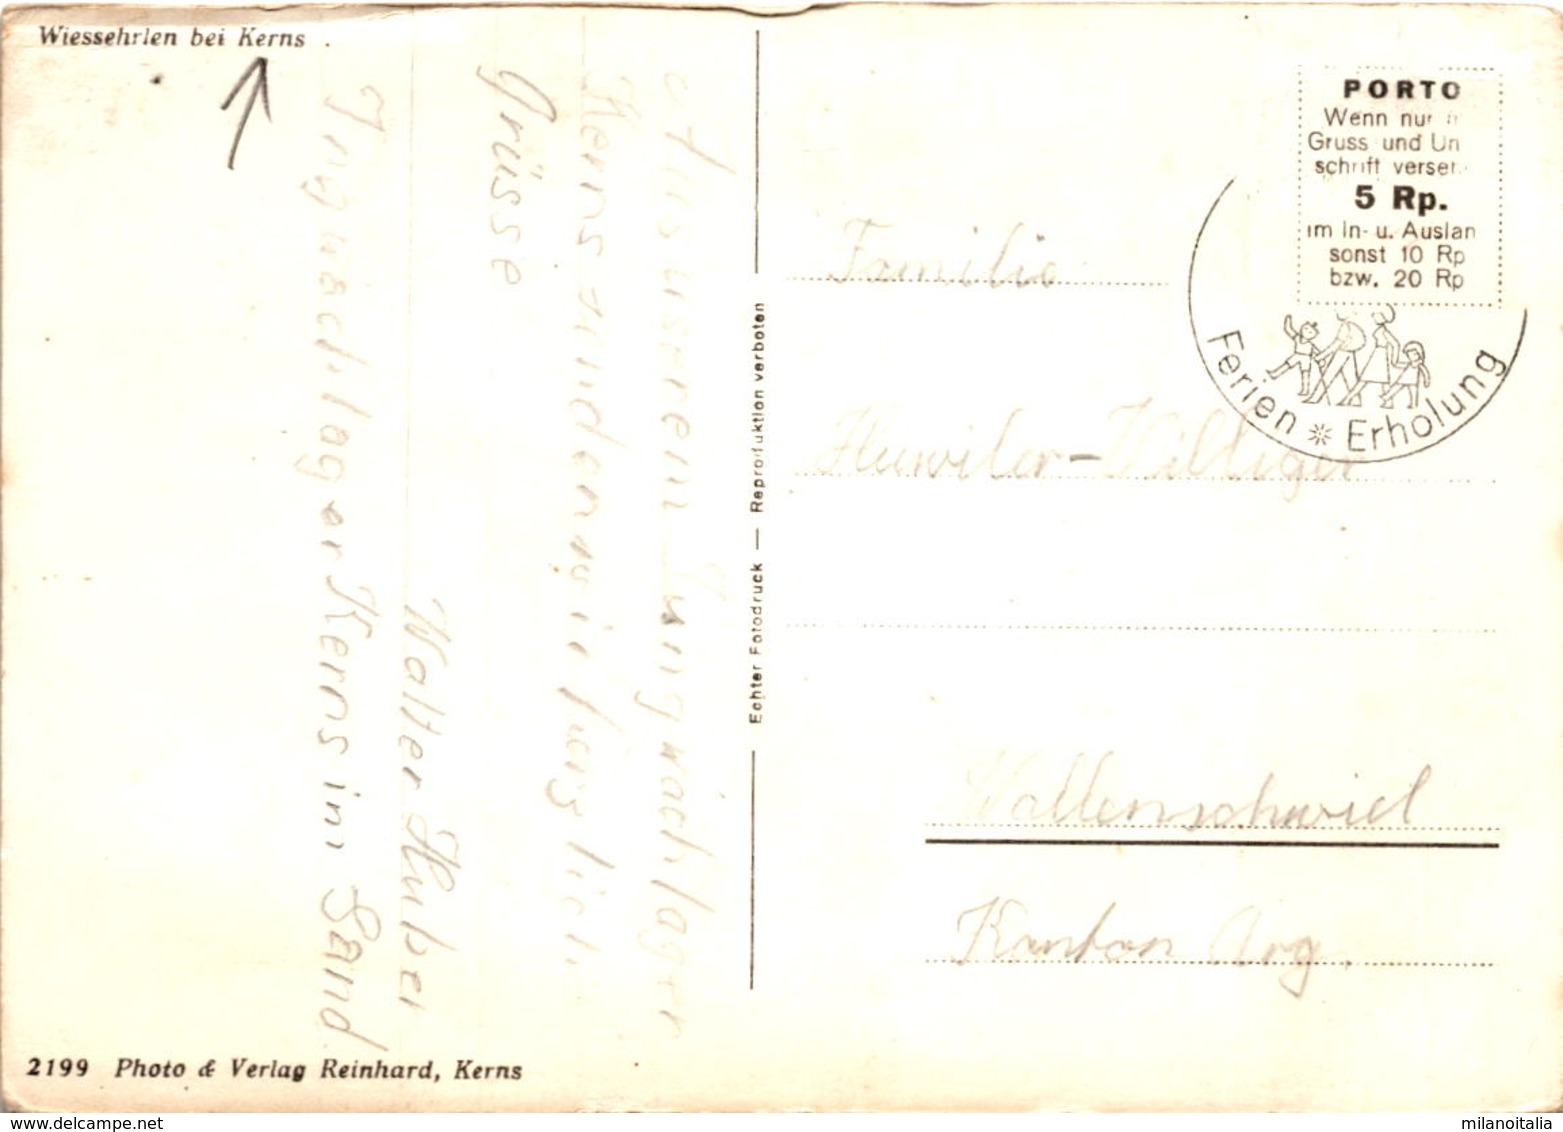 Wiesserlen bei Kerns
Aus userem Jungwachlager
Kerns sunden wir herzlich
Grüsse
Walter Huber
Jngwachlager Kerns in Sand
2199 Photo & Verlag Reinhard, Kerns
Echter Fotodruck — Reproduktion verboten
PORTO
Wenn nur
Gruss und Un
schrift verser
5 Rp.
im In- u. Auslan
sonst 10 Rp
bzw. 20 Rp
Ferien * Erholung
Familie
Huwiler-Villiger
Wallenschwiel
Kanton Arg.
www.delcampe.net
milanoitalia